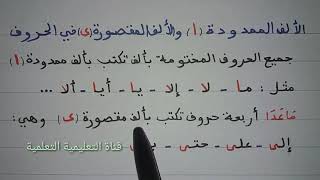 الألف الممدودة (ا) والألف المقصورة (ى) في الحروف
جميع الحروف المختومة بألف تكتب بألف ممدودة (ا)
مثل : ما - لا - إلا - يا - أيا - ألا ...
ماعدا أربعة حروف تكتب بألف مقصورة (ى) وهي :
إلى - على - حتى -
قناة التعليمية التعلمية